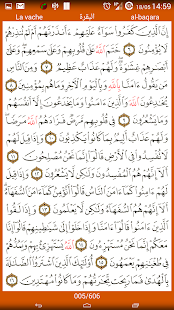 18/05 14:59
La vache البقرة al-baqara
إِنَّ ٱلَّذِينَ كَفَرُوا۟ سَوَآءٌ عَلَيْهِمْ ءَأَنذَرْتَهُمْ أَمْ لَمْ تُنذِرْهُمْ
لَا يُؤْمِنُونَ ٦ خَتَمَ ٱللَّهُ عَلَىٰ قُلُوبِهِمْ وَعَلَىٰ سَمْعِهِمْ وَعَلَىٰٓ
أَبْصَٰرِهِمْ غِشَٰوَةٌ وَلَهُمْ عَذَابٌ عَظِيمٌ ٧ وَمِنَ ٱلنَّاسِ
مَن يَقُولُ ءَامَنَّا بِٱللَّهِ وَبِٱلْيَوْمِ ٱلْءَاخِرِ وَمَا هُم بِمُؤْمِنِينَ ٨
يُخَٰدِعُونَ ٱللَّهَ وَٱلَّذِينَ ءَامَنُوا۟ وَمَا يَخْدَعُونَ إِلَّآ أَنفُسَهُمْ
وَمَا يَشْعُرُونَ ٩ فِى قُلُوبِهِم مَّرَضٌ فَزَادَهُمُ ٱللَّهُ مَرَضًا
وَلَهُمْ عَذَابٌ أَلِيمٌۢ بِمَا كَانُوا۟ يَكْذِبُونَ ١٠ وَإِذَا قِيلَ لَهُمْ
لَا تُفْسِدُوا۟ فِى ٱلْأَرْضِ قَالُوٓا۟ إِنَّمَا نَحْنُ مُصْلِحُونَ ١١
أَلَآ إِنَّهُمْ هُمُ ٱلْمُفْسِدُونَ وَلَٰكِن لَّا يَشْعُرُونَ ١٢ وَإِذَا قِيلَ لَهُمْ
ءَامِنُوا۟ كَمَآ ءَامَنَ ٱلنَّاسُ قَالُوٓا۟ أَنُؤْمِنُ كَمَآ ءَامَنَ ٱلسُّفَهَآءُ
أَلَآ إِنَّهُمْ هُمُ ٱلسُّفَهَآءُ وَلَٰكِن لَّا يَعْلَمُونَ ١٣ وَإِذَا لَقُوا۟ ٱلَّذِينَ
ءَامَنُوا۟ قَالُوٓا۟ ءَامَنَّا وَإِذَا خَلَوْا۟ إِلَىٰ شَيَٰطِينِهِمْ قَالُوٓا۟ إِنَّا
مَعَكُمْ إِنَّمَا نَحْنُ مُسْتَهْزِءُونَ ١٤ ٱللَّهُ يَسْتَهْزِئُ بِهِمْ وَيَمُدُّهُمْ
فِى طُغْيَٰنِهِمْ يَعْمَهُونَ ١٥ أُو۟لَٰٓئِكَ ٱلَّذِينَ ٱشْتَرَوُا۟ ٱلضَّلَٰلَةَ
بِٱلْهُدَىٰ فَمَا رَبِحَت تِّجَٰرَتُهُمْ وَمَا كَانُوا۟ مُهْتَدِينَ ١٦
005/606